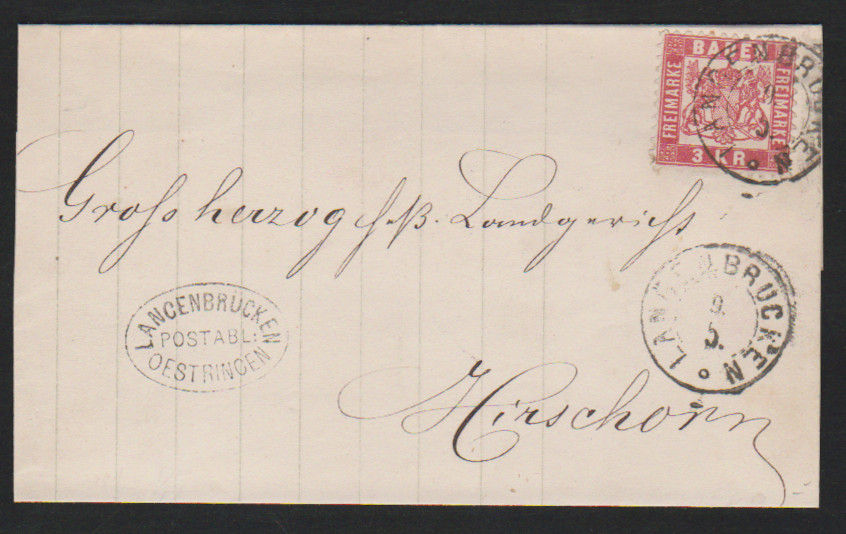 BADEN
FREIMARKE
FREIMARKE
3 KR
LANGENBRÜCKEN
9
5.
Großherzog heß. Landgericht
LANGENBRÜCKEN
POSTABL:
OESTRINGEN
LANGENBRÜCKEN
9.
5.
Hirschorn